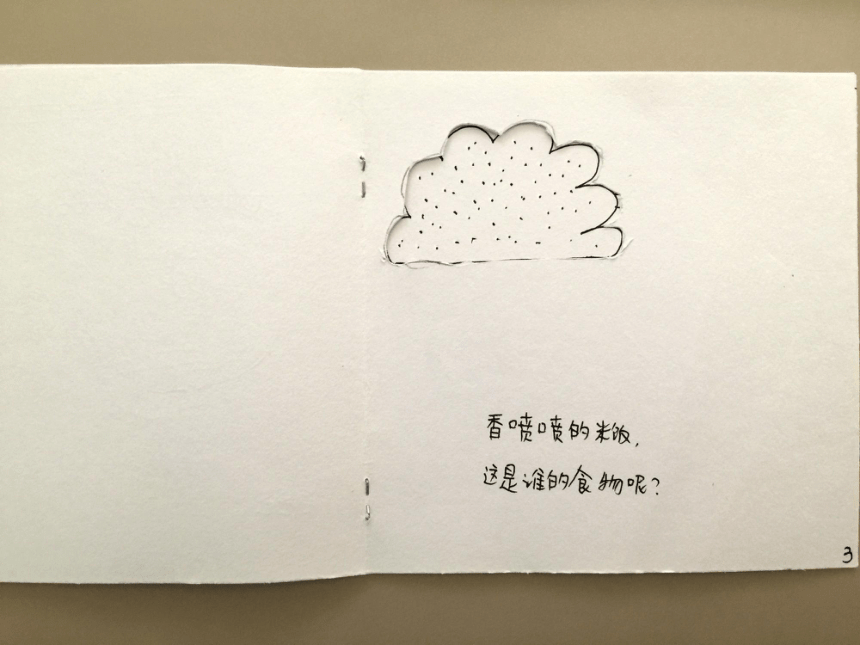 香喷喷的米饭,
这是谁的食物呢?
3